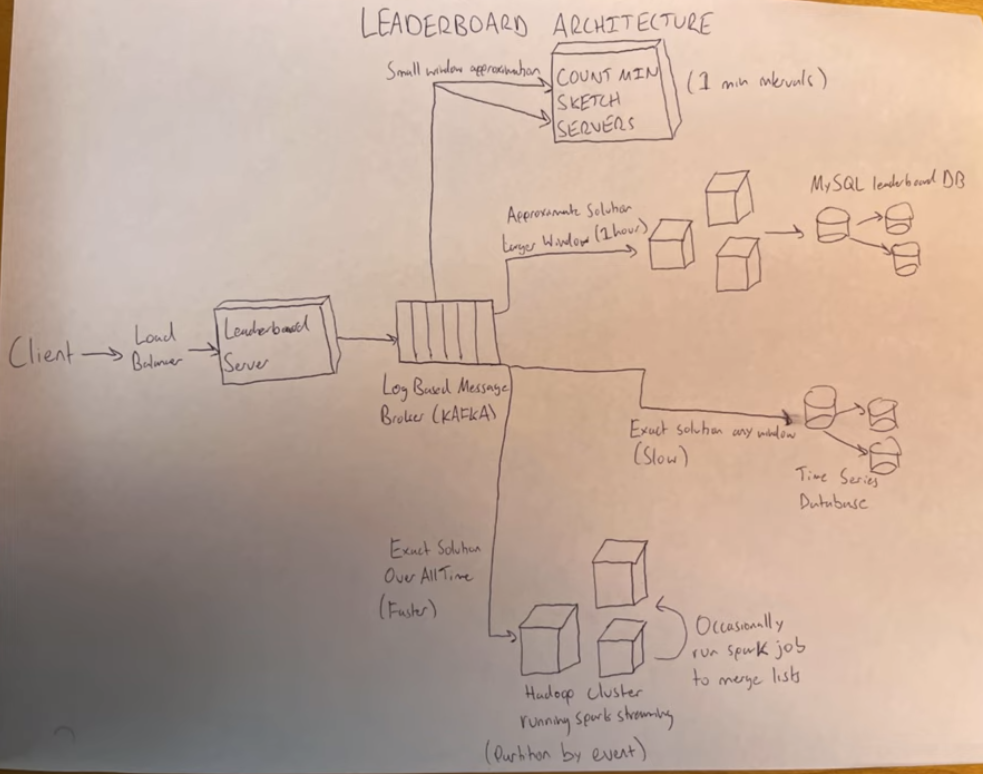 LEADERBOARD ARCHITECTURE
Small window approximation
COUNT MIN
SKETCH
SERVERS
(1 min intervals)
Approximate Solution
Larger Window (1 hour)
MySQL leaderboard DB
Client
Load
Balancer
Leaderboard
Server
Log Based Message
Broker (KAFKA)
Exact solution any window
(Slow)
Time Series
Database
Exact Solution
Over All Time
(Faster)
Occasionally
run spark job
to merge lists
Hadoop cluster
running spark streaming
(Partition by event)